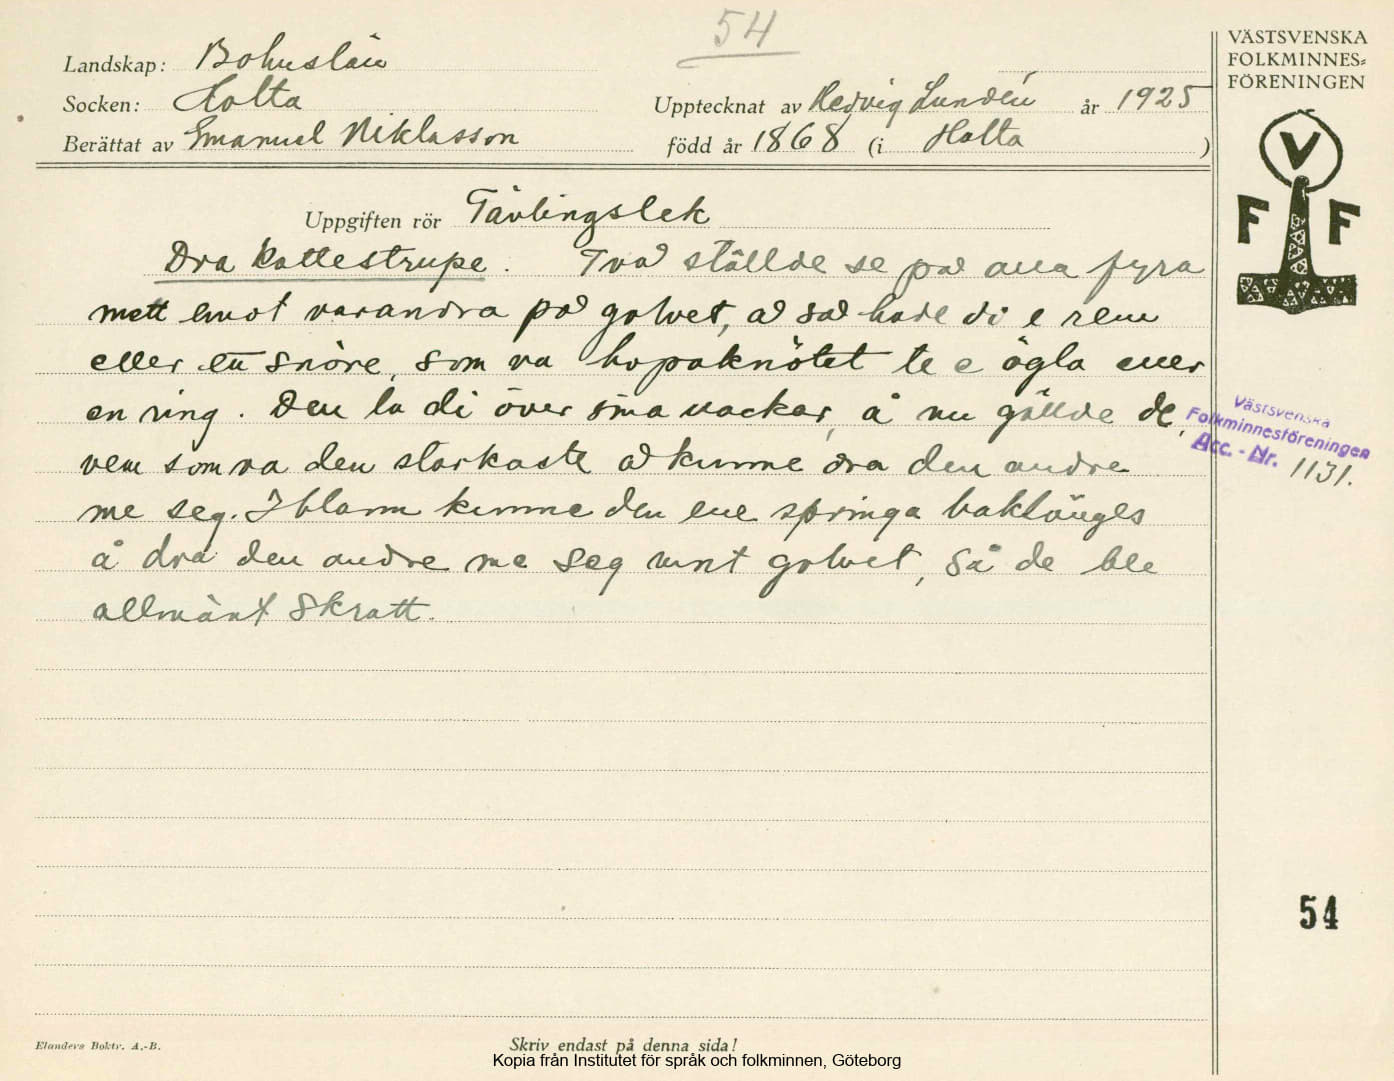 54
VÄSTSVENSKA
FOLKMINNES=
FÖRENINGEN
Landskap: Bohuslän
Socken: Holta
Upptecknat av Hedvig Lundén år 1925
Berättat av Emanuel Niklasson
född år 1868 (i Holta )
V
F F
Uppgiften rör Tävlingslek
Dra kattestrupe. Två ställde se på alla fyra
mett emot varandra på golvet, å så hade di e rem
eller ett snöre, som va hopaknötet te e ögla eller
en ring. Den la di över sina nackar, å nu gällde de,
vem som va den starkaste å kunne dra den andre
me seg. Iblann kunne den ene springa baklänges
å dra den andre me seg runt golvet, så de ble
allmänt skratt.
Västsvenska
Folkminnesföreningen
Acc. - Nr. 1131.
54
Elanders Boktr. A.-B.
Skriv endast på denna sida!
Kopia från Institutet för språk och folkminnen, Göteborg